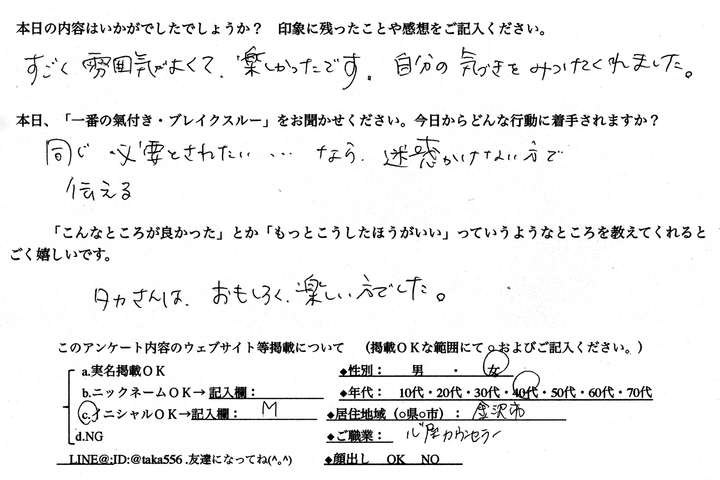 本日の内容はいかがでしたでしょうか? 印象に残ったことや感想をご記入ください。
すごく 雰囲気がよくて、楽しかったです。自分の気づきをみつけてくれました。
本日、「一番の氣付き・ブレイクスルー」をお聞かせください。今日からどんな行動に着手されますか?
同じ 必要とされたい… なら、迷惑かけない方で
伝える
「こんなところが良かった」とか「もっとこうしたほうがいい」っていうようなところを教えてくれると
ごく嬉しいです。
タカさんは、おもしろく、楽しい方でした。
このアンケート内容のウェブサイト等掲載について (掲載OKな範囲にて○およびご記入ください。)
a.実名掲載OK ◆性別: 男 ・ 女
b.ニックネームOK→記入欄: ◆年代: 10代・20代・30代・40代・50代・60代・70代
c.イニシャルOK→記入欄: M ◆居住地域(○県○市): 金沢市
d.NG ◆ご職業: 心理カウンセラー
LINE@:ID:@taka556 .友達になってね(^。^) ◆顔出し OK NO